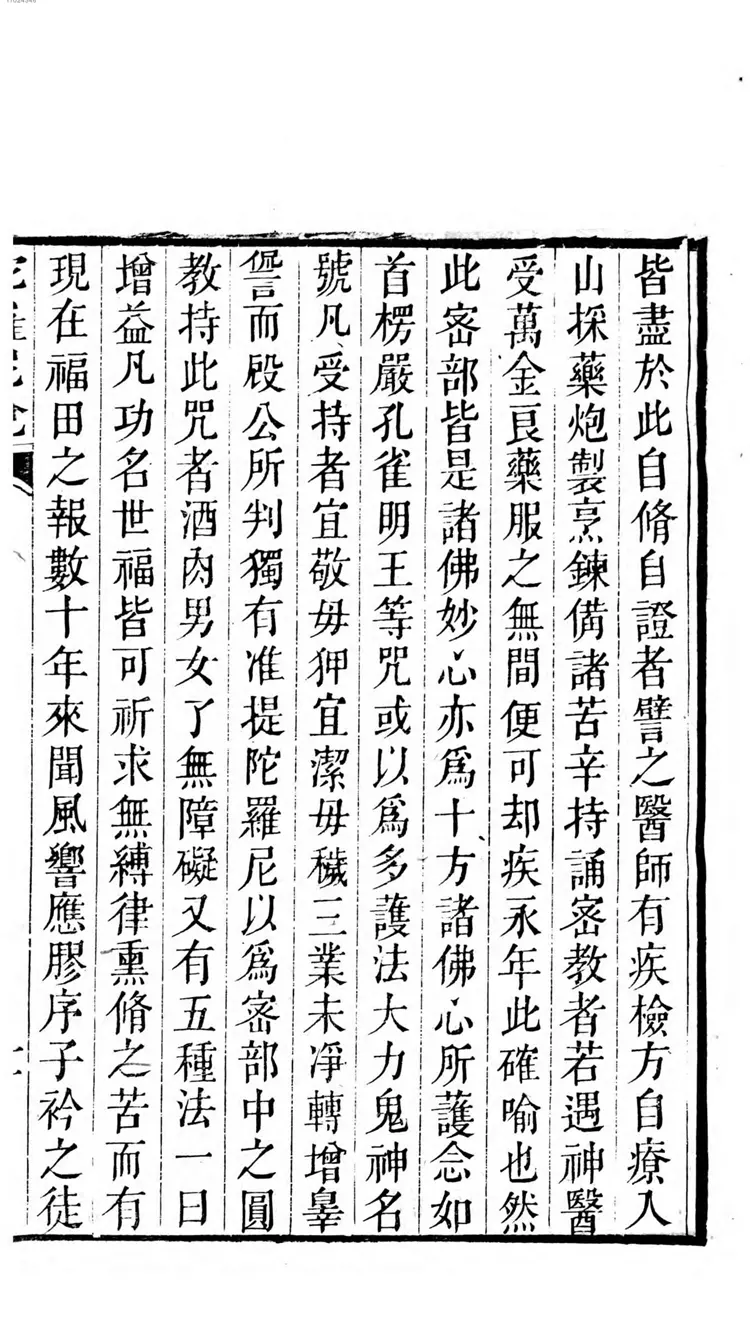 皆盡於此自脩自證者譬之醫師有疾檢方自療入
山採藥炮製烹鍊備諸苦辛持誦密教者若遇神醫
受萬金良藥服之無間便可却疾永年此確喻也然
此密部皆是諸佛妙心亦爲十方諸佛心所護念如
首楞嚴孔雀明王等咒或以爲多護法大力鬼神名
號凡受持者宜敬毋狎宜潔毋穢三業未淨轉增辠
而段公所判獨有准提陀羅尼以爲密部中之圓
教持此咒者酒肉男女了無障礙又有五種法一曰
增益凡功名世福皆可祈求無縛律熏脩之苦而有
現在福田之報數十年來聞風響應膠序子衿之徒